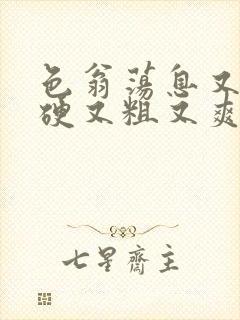 色翁荡息又
硬又粗又爽
七星斋主